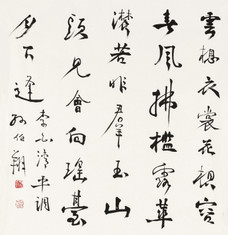 雲想衣裳花想容
春風拂檻露華
濃若非群玉山
頭見會向瑤臺
月下逢
李白清平調
孫伯翔